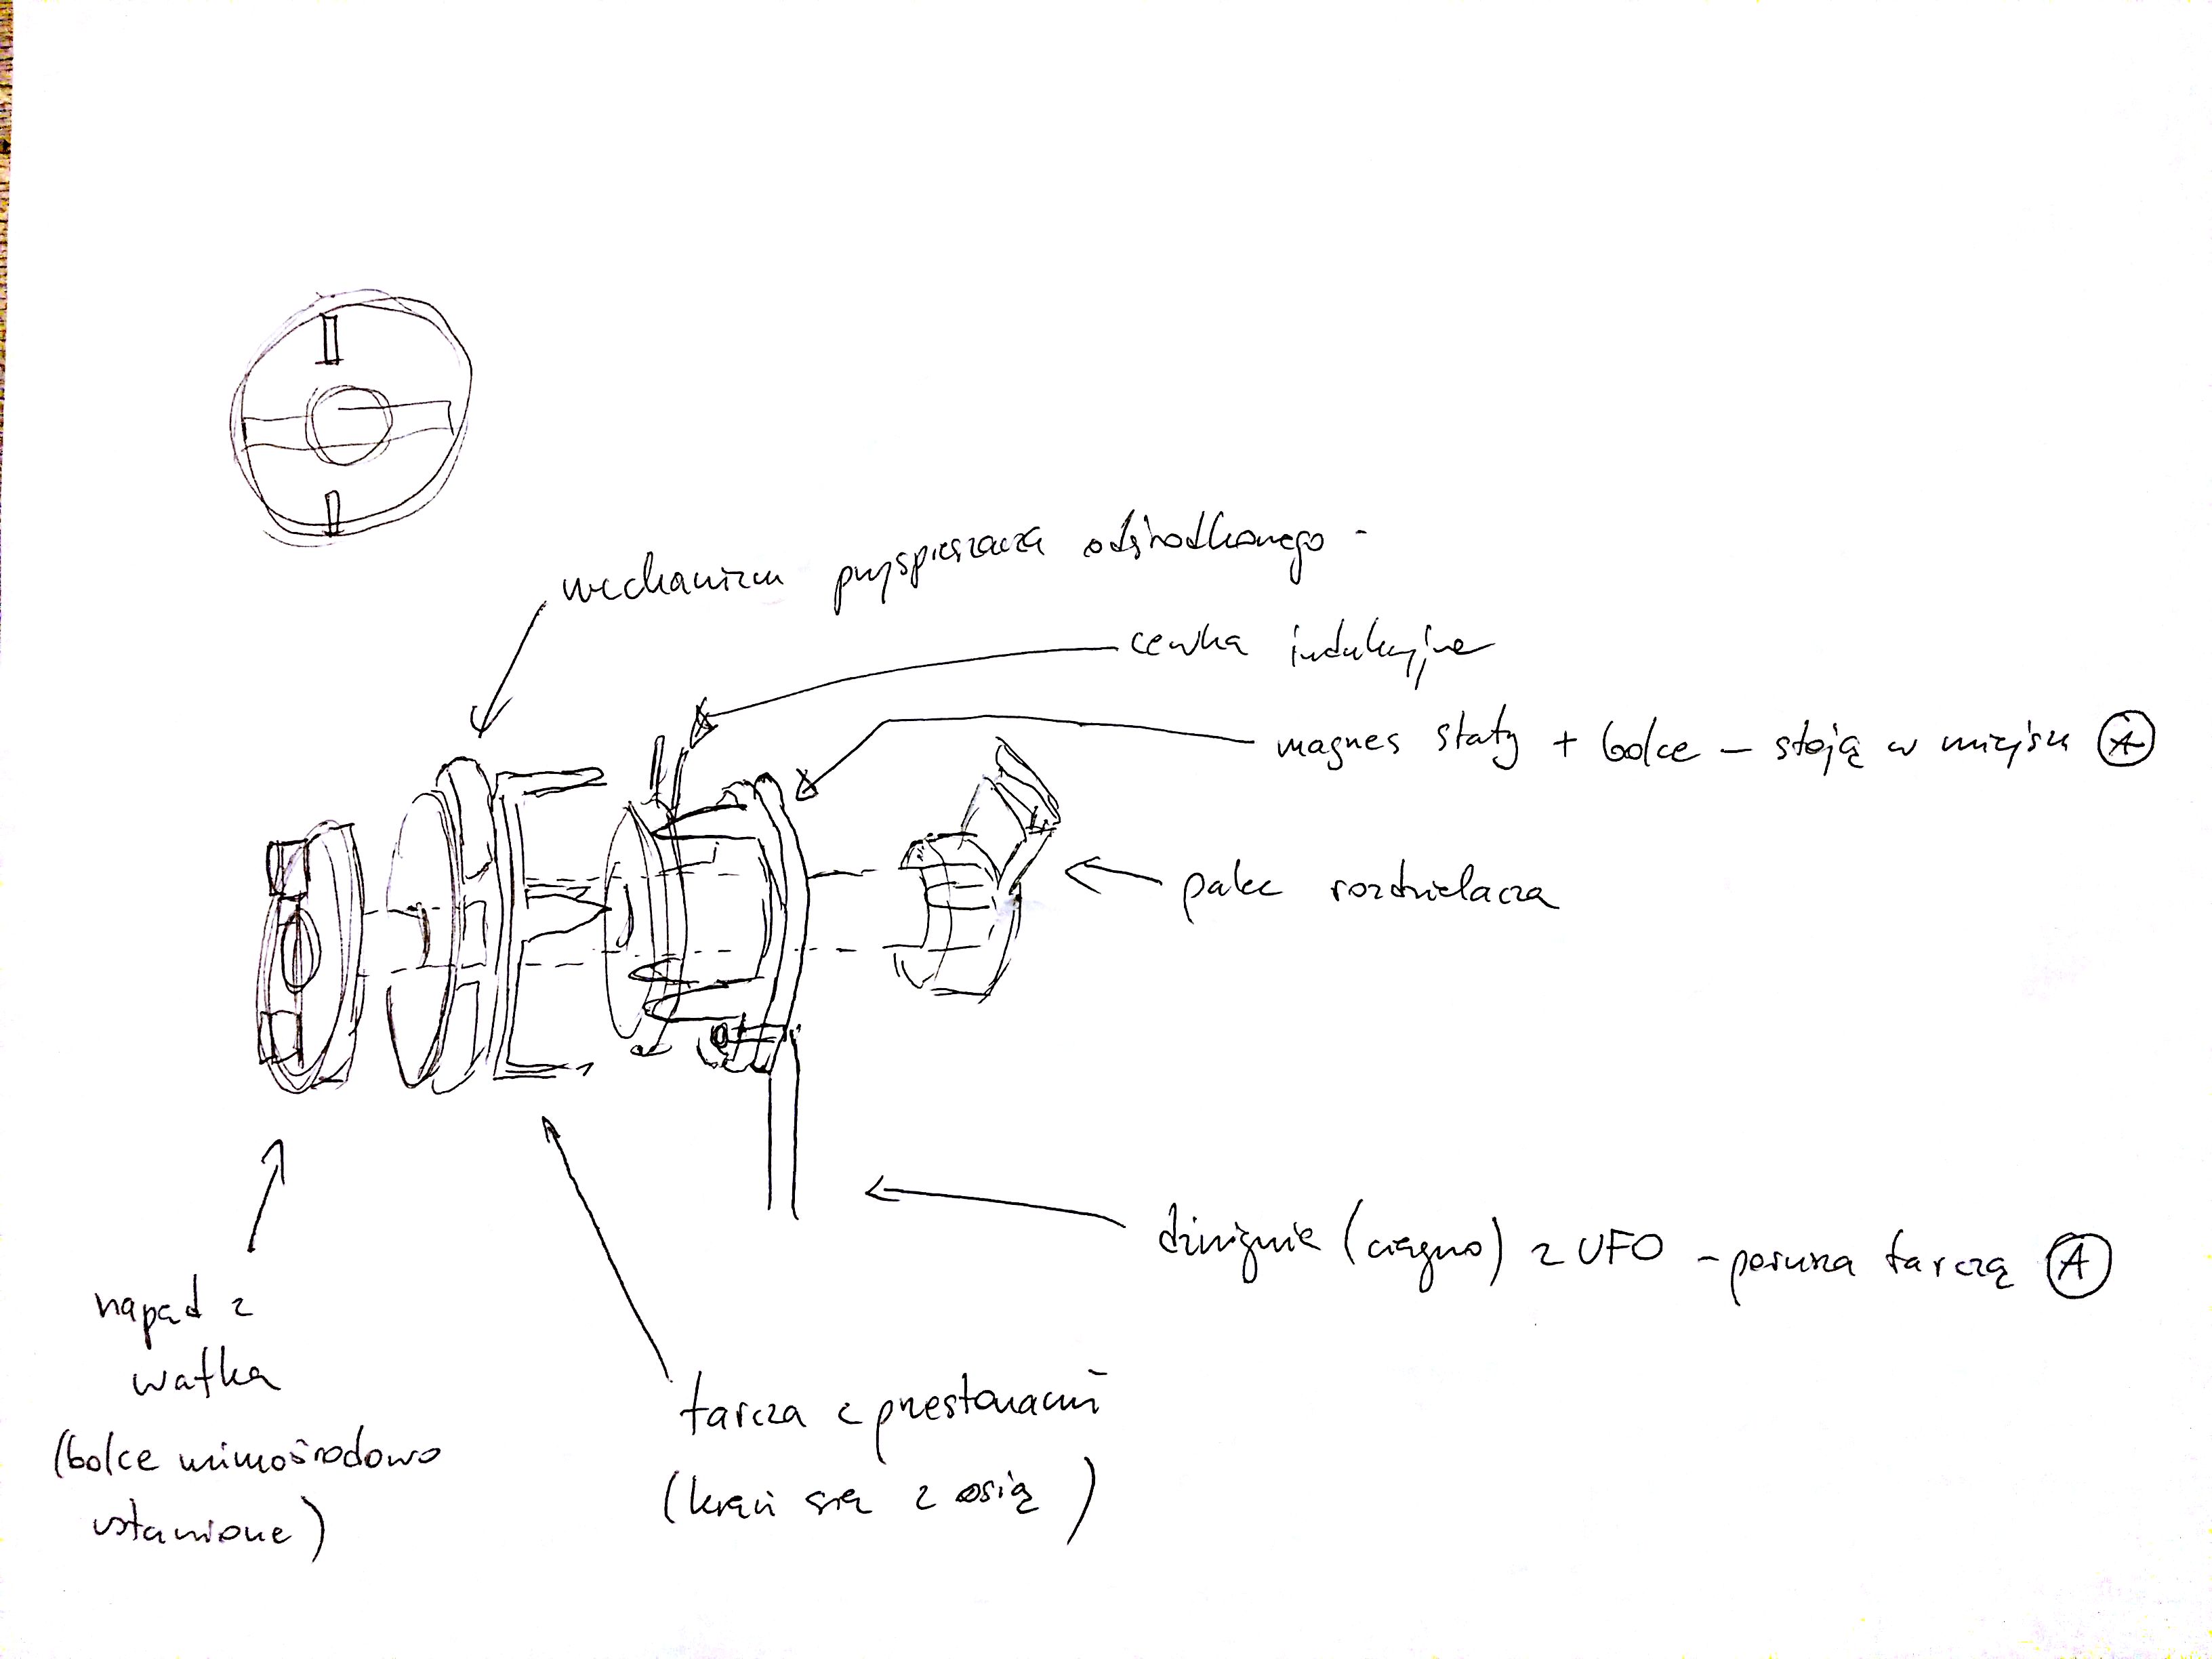 mechanizm przyspieszacza odśrodkowego -
cewka indukcyjna
magnes stały + bolce - stoją w miejscu A
palec rozdzielacza
dźwignia (cięgno) z UFO - porusza tarczą A
napęd z
wałka
(bolce mimośrodowo
ustawione)
tarcza z przesłonami
(kręci się z osią)